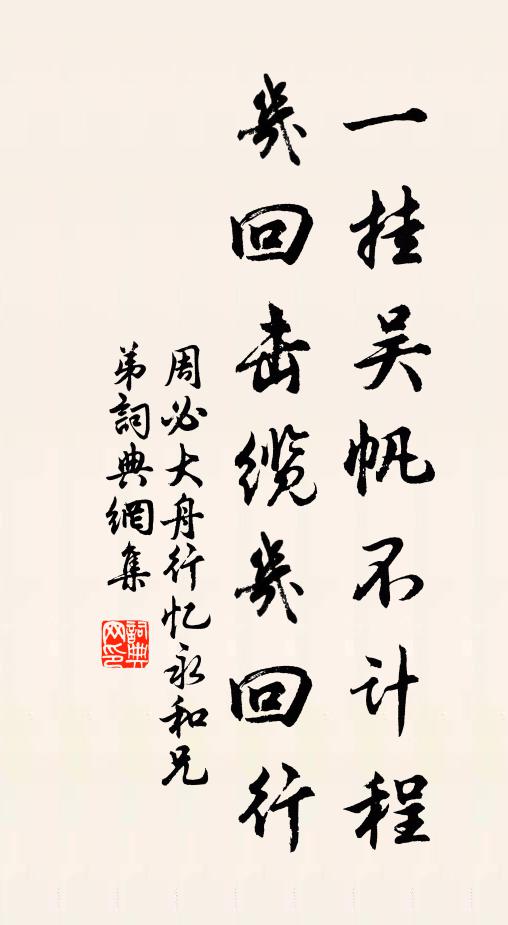 一挂吴帆不计程
幾回击缆幾回行
周必大舟行忆永和兄
弟詞典網集
詞典网印